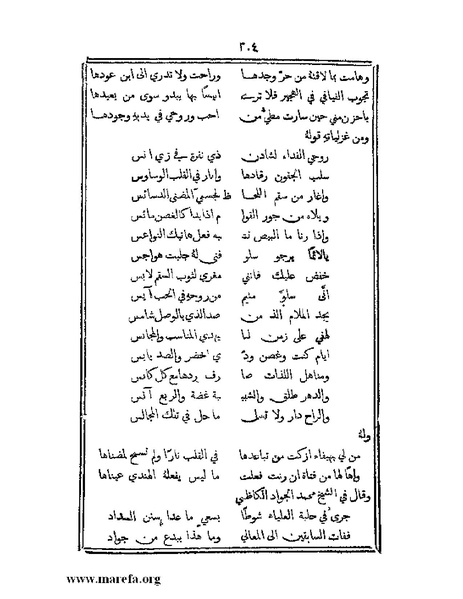 ٢٠٤
وهامت بما لاقته من حرّ وجدها وراحت ولا تدري الى ابن عودها
تجوب الفيافي في الهجير فلا ترى انيسًا بها يبدو سوى من بعيدها
باحزن مني حين سارت مطيّ من احب وروحي في يديهِ وجودها
ومن غزلياتهِ قولهُ
روحي الفداء لشادن ذي نفرة في زي آنس
سلب الجفون رقادها واثار في القلب الوساوس
واغار من سقم اللحا ظ لجسمي المضنى الدسائس
ويلاه من جور الغوا م اذا بدا كالغصن مائس
واذا رنا ما البيض تفـ ـه فعل هاتيك النواعس
يا لائمًا يرجو سلو فتى لهُ جلبت هواجس
خفض عليك فانني مغرى لثوب السقم لابس
انّى سلوّ متيم من روحهِ في الحب آيس
يجد الملام الذ من صد الذي بالوصل شامس
لهفي على زمن لنا بهدي المناسب والمجانس
ايام كنت وغصن ودّ ي اخضر والصد يابس
ومناهل اللذات صا رف بردها مع كل كانس
والدهر طلق والشبيـ ـبة غضة والربع آنس
والراح دار ولا تسل ما حل في تلك المجالس
ولهُ
من لي بهيفاء اذكت من تباعدها في القلب نارًا ولم تسمح لمضناها
واهًا لها من فتاة ان رنت فعلت ما ليس يفعلهُ الهندي عيناها
وقال في الشيخ محمد الجواد الكاظمي
جرى في حلبة العلياء شوطًا بسعي ما عدا سنن السداد
ففات السابقين الى المعالي وما هذا ببدع من جواد
www.marefa.org